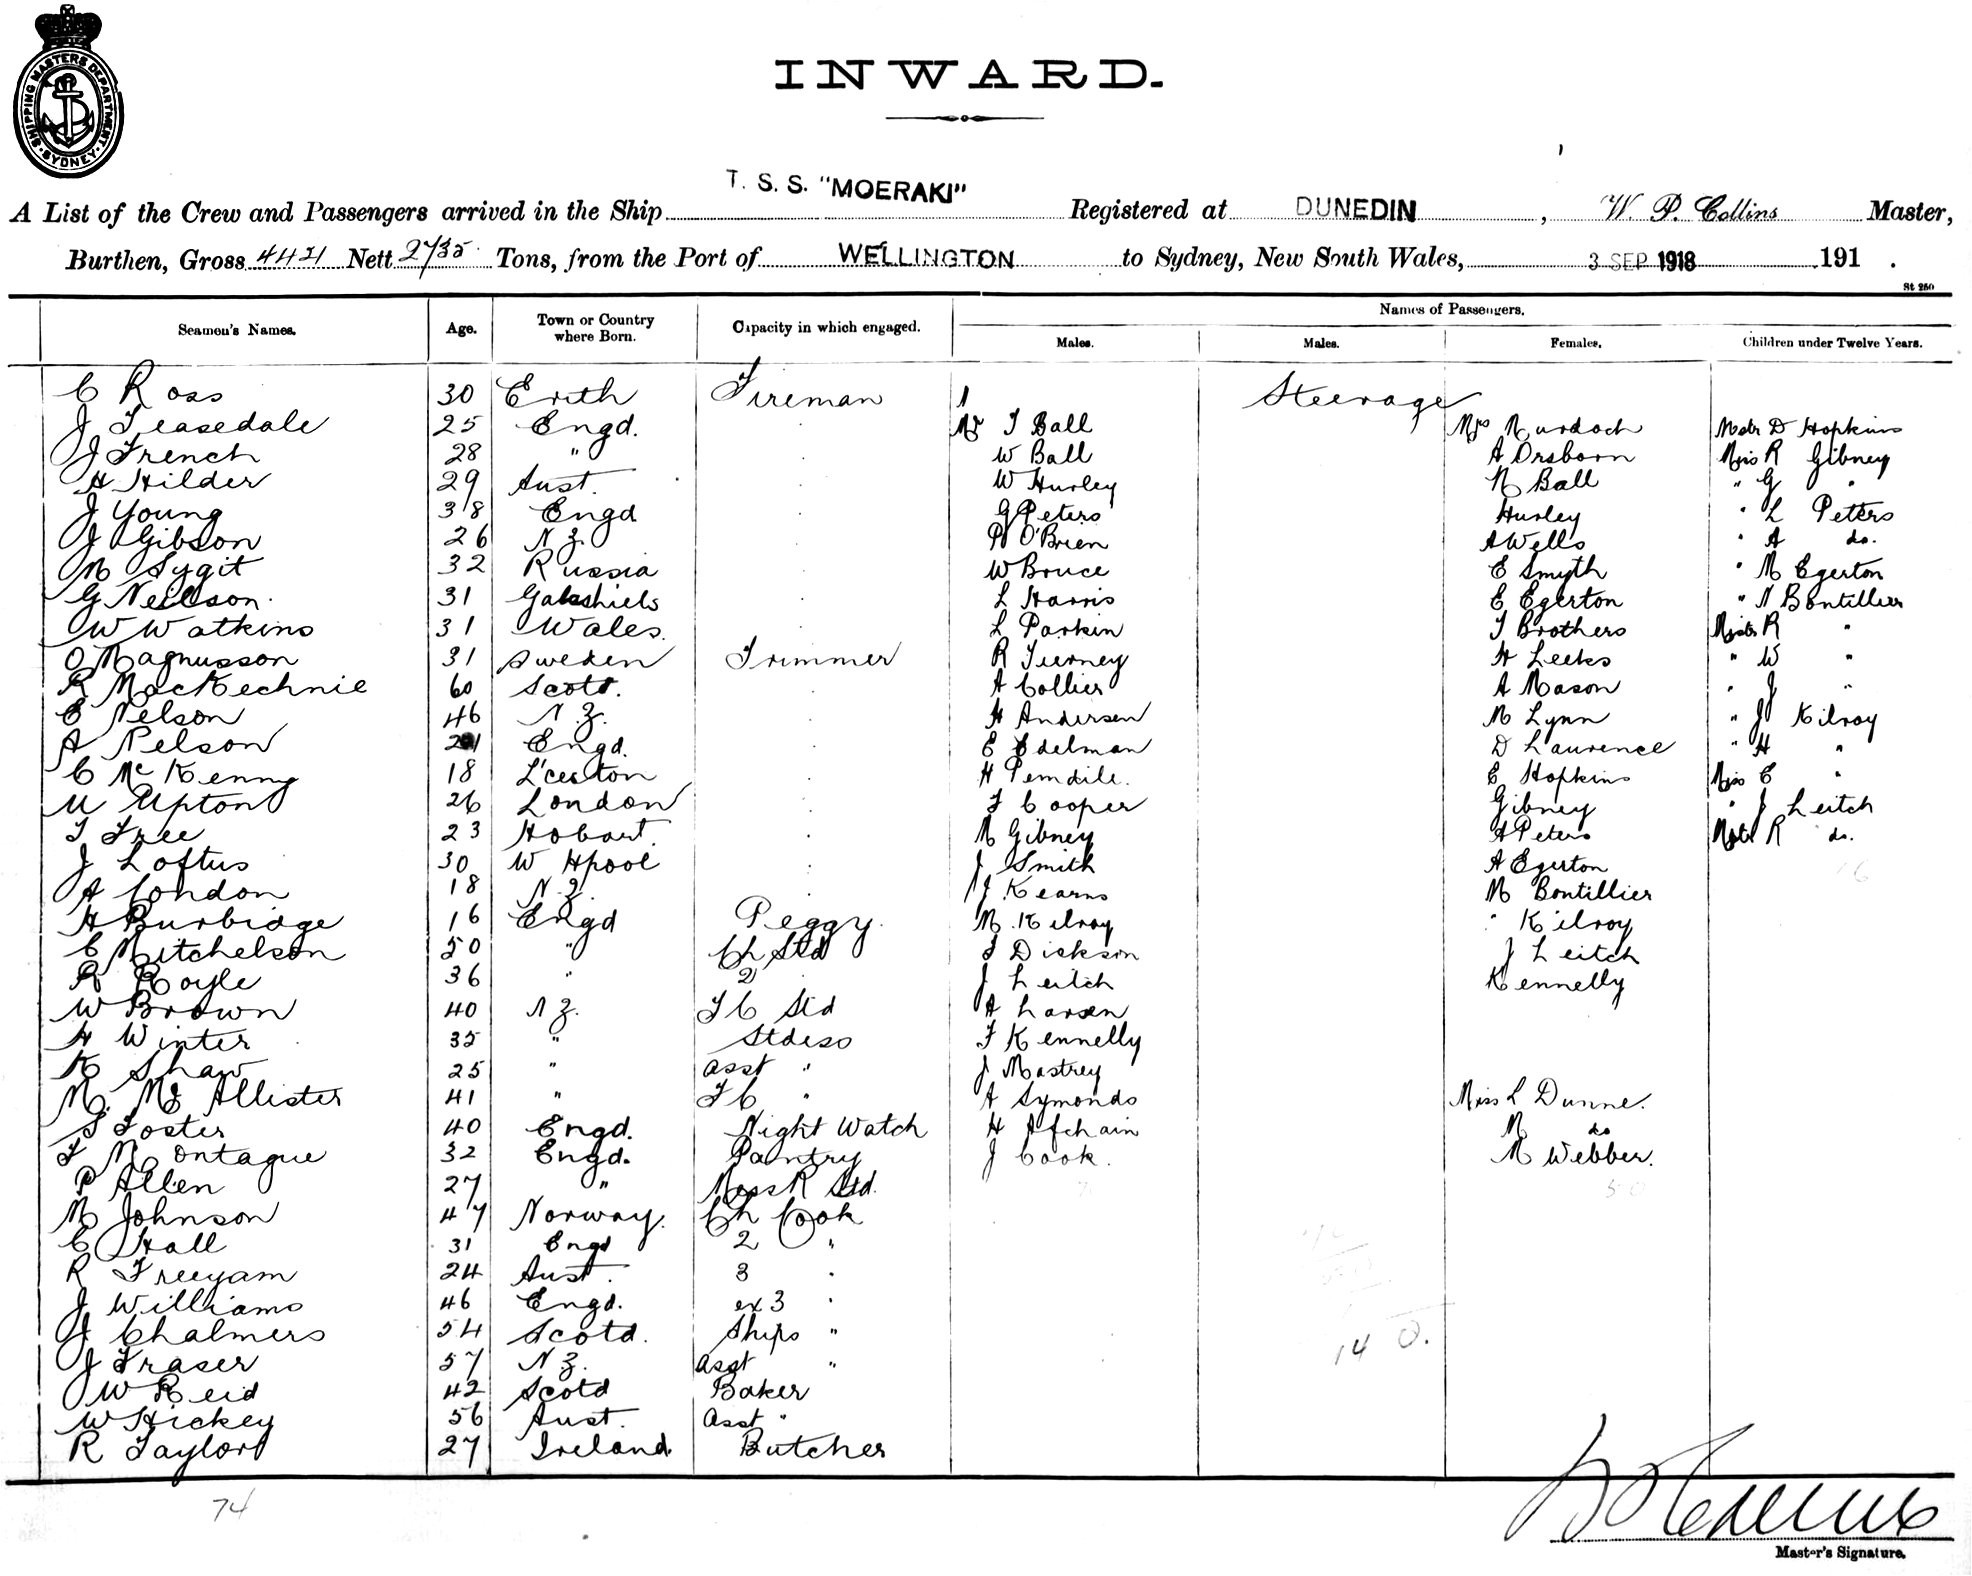 SHIPPING MASTERS DEPARTMENT. SYDNEY
INWARD.
T. S. S. "MOERAKI"
A List of the Crew and Passengers arrived in the Ship Registered at DUNEDIN, W. P. Collins Master,
Burthen, Gross 4421 Nett 2735 Tons, from the Port of WELLINGTON to Sydney, New South Wales, 3 SEP 1918 191 .
St 250
Seamen's Names. Age. Town or Country where Born. Capacity in which engaged. Names of Passengers.
Males. Males. Females. Children under Twelve Years.
C Ross 30 Erith Fireman Steerage
J Teasedale 25 Engd. Mr T Ball Mrs Murdoch Mstr D Hopkins
J French 28 " W Ball A Orsborn Miss R Gibney
H Hilder 29 Aust. W Hurley N Ball " G "
J Young 38 Engd G Peters Hurley " L Peters
J Gibson 26 N Z. P O'Brien A Wells " A do.
M Sygit 32 Russia W Bruce E Smyth " M Egerton
G Neilson 31 Galashiels L Harris E Egerton " N Bontillier
W Watkins 31 Wales. L Parkin T Brothers Mstr R "
O Magnusson 31 Sweden Trimmer R Tierney H Leeks " W "
R MacKechnie 60 Scotd. A Collier A Mason " J "
E Nelson 46 N Z. H Andersen M Lynn " J Kilroy
A Nelson 21 Engd. E Edelman D Laurence " H "
C McKenny 18 L'ceston H Pemdile. E Hopkins Miss C "
U Upton 26 London T Cooper Gibney " J Leitch
T Free 23 Hobart. M Gibney A Peters Mstr R do.
J Loftus 30 W Hpool J Smith A Egerton
A London 18 N Z. J Kearns M Bontillier
H Burbidge 16 Engd Peggy. M. Kilroy " Kilroy
C Mitchelson 50 " Ch Std T Dickson J Leitch
R Royle 36 " 2 J Leitch Kennelly
W Brown 40 N Z. T C Std A Larsen
H Winter 35 " Stdess F Kennelly
K Shaw 25 " Asst " J Mastrey
M. Mc Allister 41 " T C " A Symonds Miss L Dunne.
S Foster 40 Engd. Night Watch H Afchain M do
F Montague 32 Engd. Pantry J Cook. M Webber.
P Allen 27 " Mess R Std. 50
M Johnson 47 Norway. Ch Cook
C Hall 31 Engd 2 "
R Freeyam 24 Aust. 3 "
J Williams 46 Engd. ex 3 "
J Chalmers 54 Scotd. Ships "
J Fraser 57 N Z. Asst "
W Reid 42 Scotd Baker
W Hickey 56 Aust. Asst "
R Taylor 27 Ireland. Butcher
140.
74
W P Collins
Master's Signature.